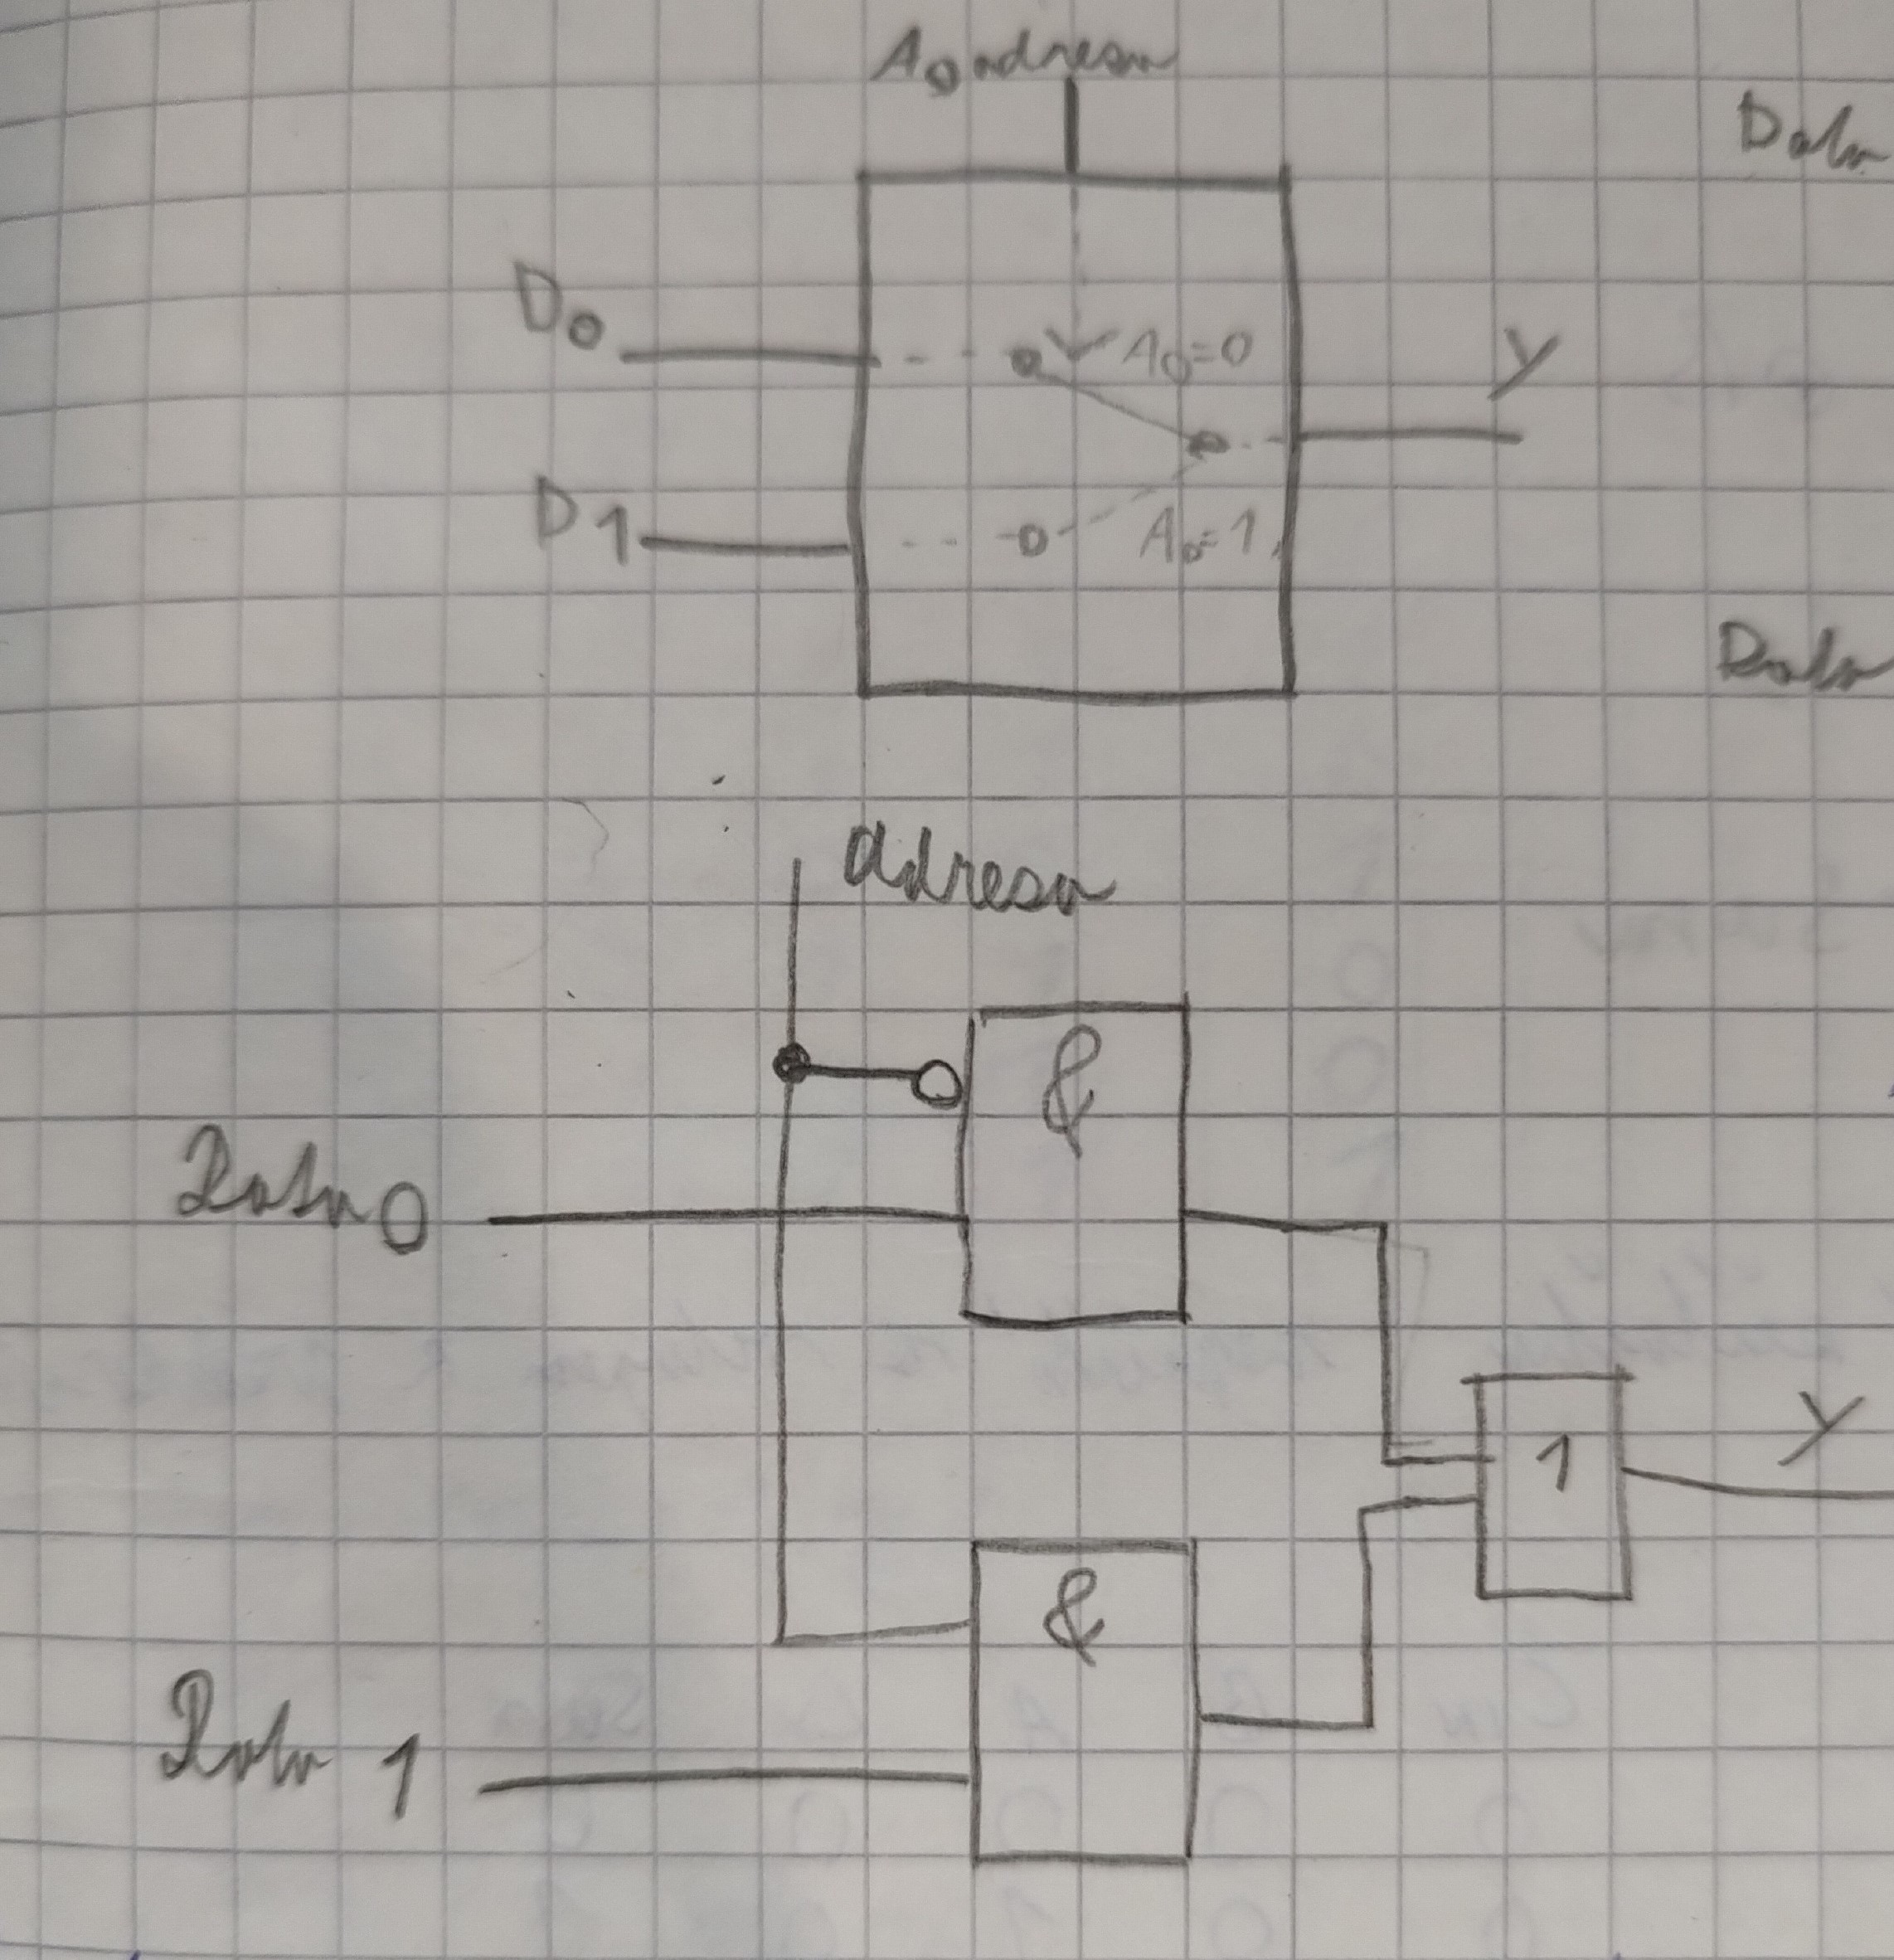 A0 adresa
Data
D0
A0=0
Y
D1
A0=1
Data
adresa
&
Data 0
1
Y
&
Data 1